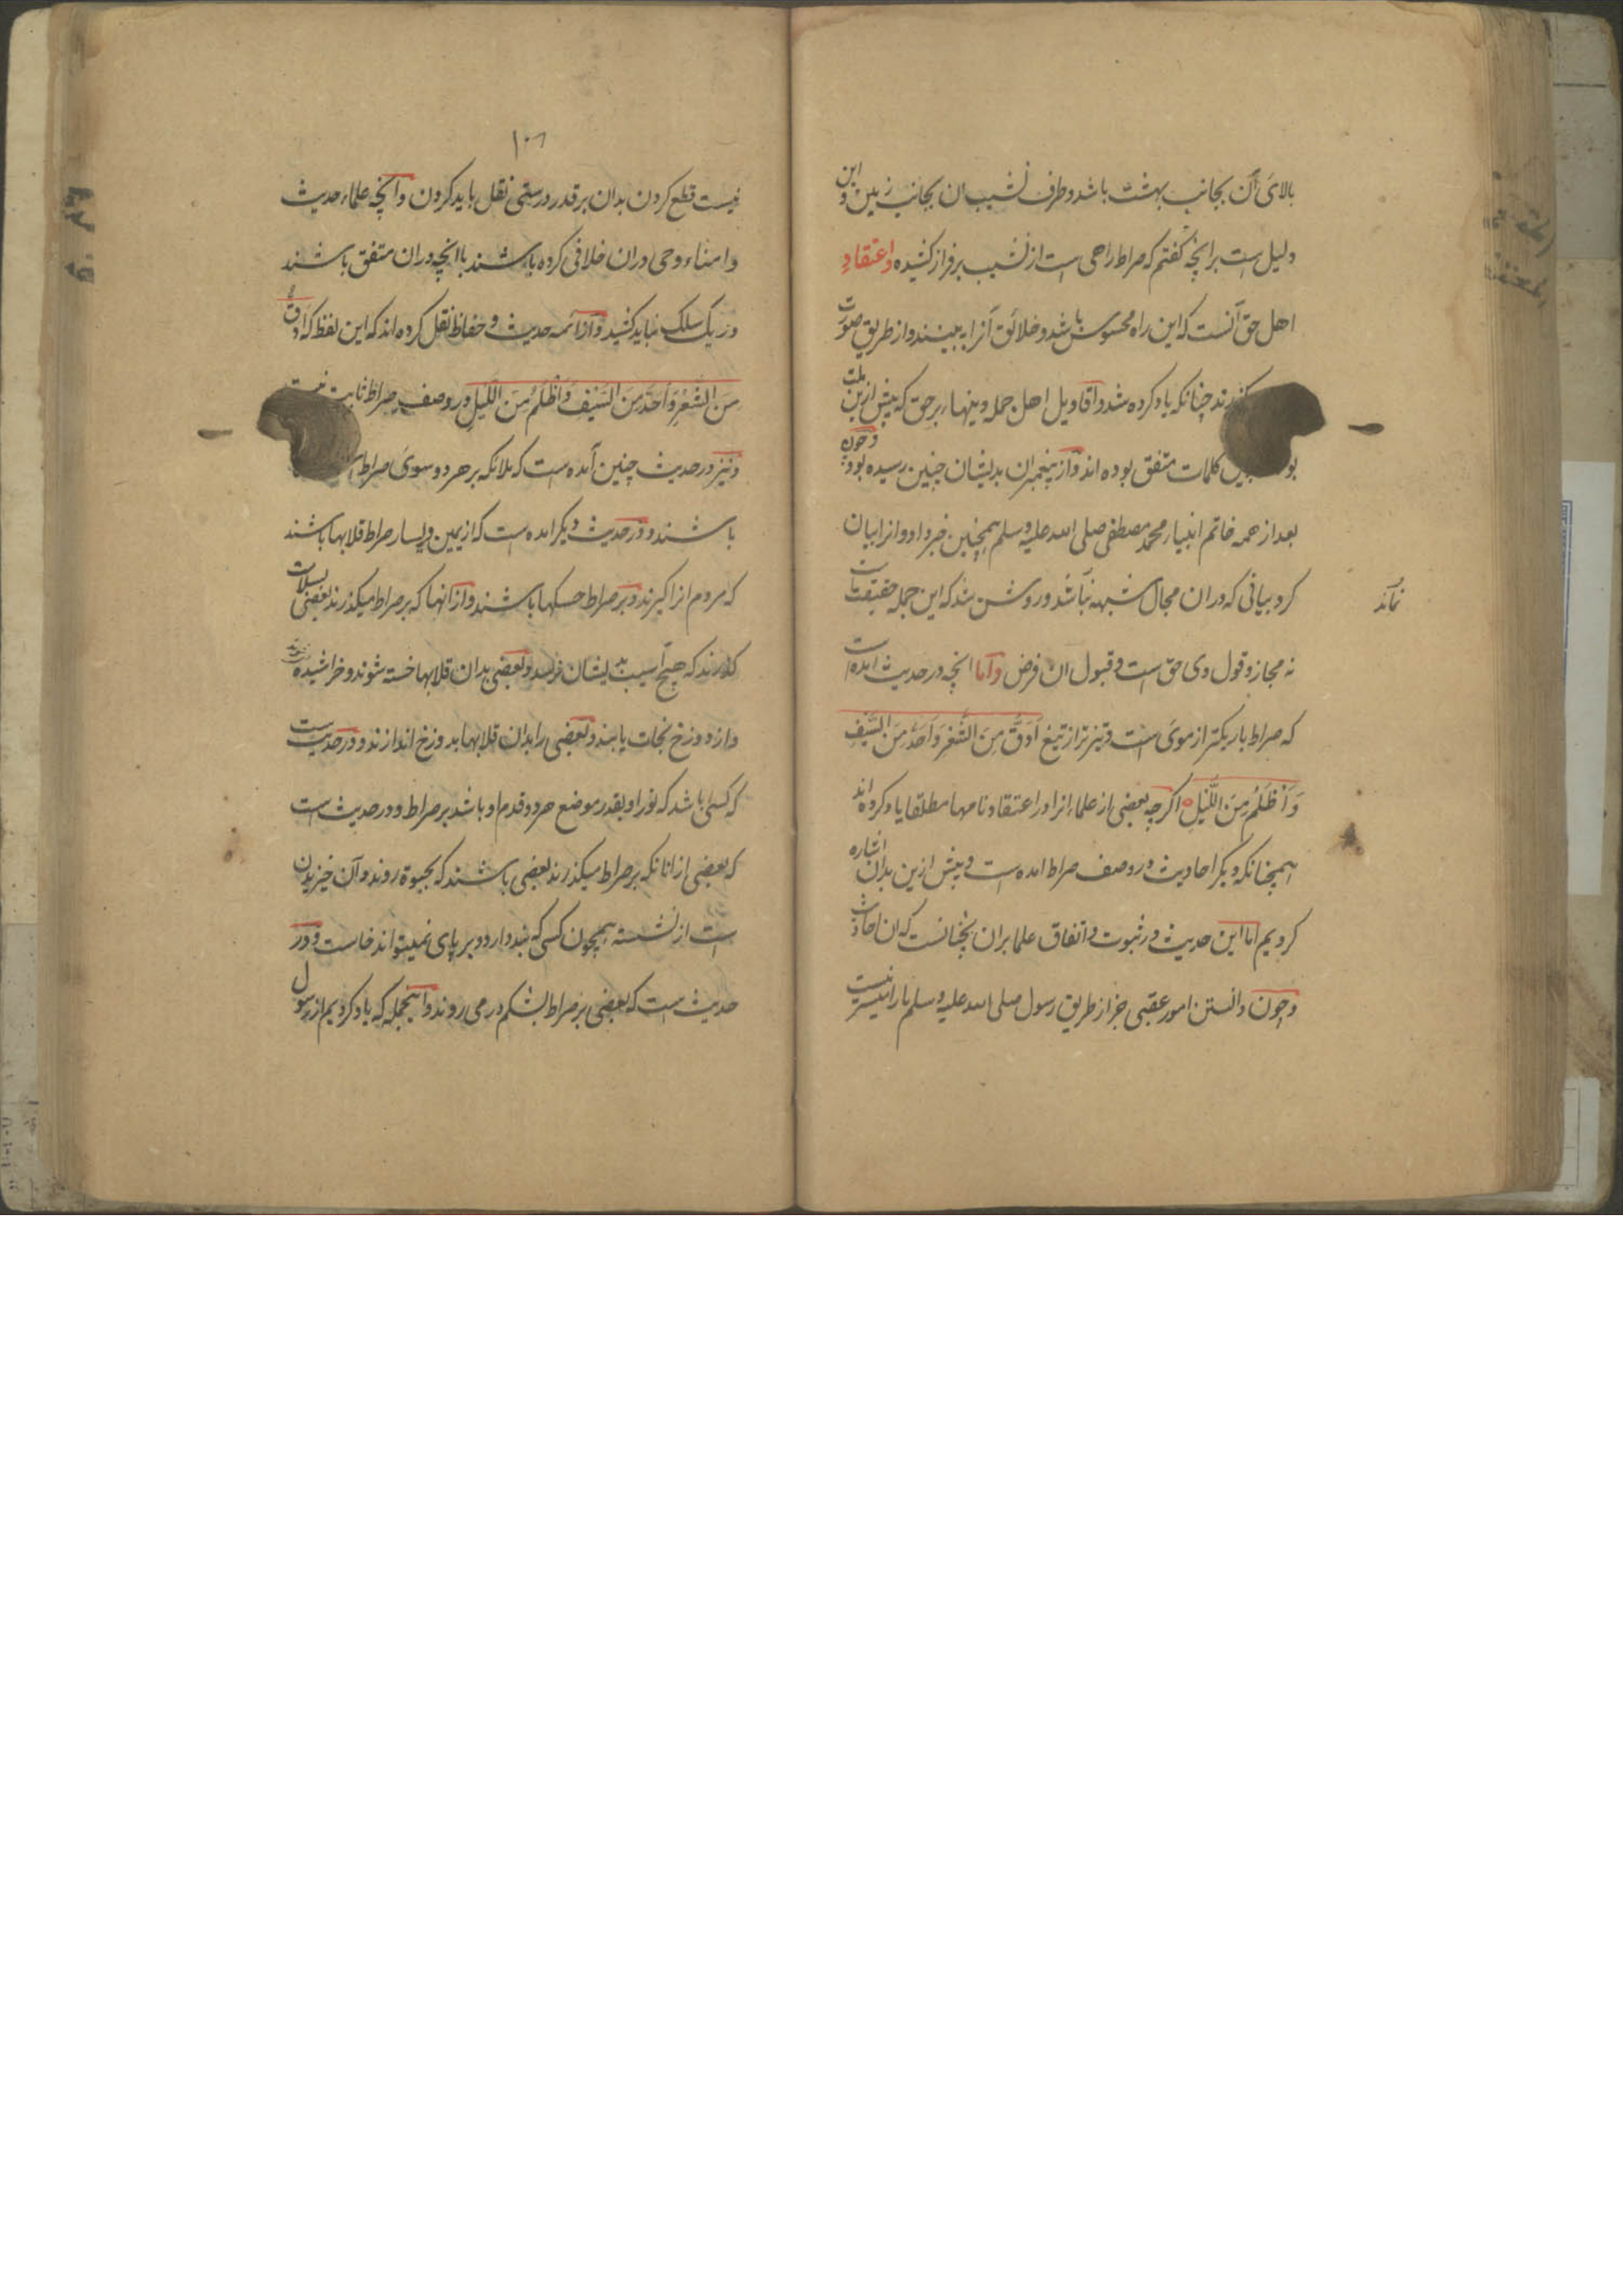 بالای آن بجانب بهشت باشد و طرف نشیب ان بجانب زمین و این
دلیل است برانچه گفتم که صراط راهی است از نشیب بر فراز کشیده و اعتقاد
اهل حق آنست که این راه محسوس باشد و خلائق آنرا به بینند و از طریق صورت
گذرند چنانکه یاد کرده شد و اقاویل اهل جمله دینهاء بر حق که پیش ازین ملت
کلمات متفق بوده اند و از پیغمبران بدیشان چنین رسیده بود و چون
بعد از همه خاتم انبیا محمد مصطفی صلی الله علیه و سلم همچنین خبر داد و انرا بیان
کرد بیانی که دران مجال شبهه نباشد و روشن شد که این جمله حقیقت است
نماند
نه مجاز و قول وی حق است و قبول ان فرض و اما انچه در حدیث امده است
که صراط باریکتر از موی است و تیزتر از تیغ اَدَقُّ مِنَ الشَّعْرِ وَ اَحَدُّ مِنَ السَّیْفِ
وَ اَظْلَمُ مِنَ اللَّیْلِ اگرچه بعضی از علماء انرا در اعتقاد نامها مطلقا یاد کرده اند
همچنانکه دیگر احادیث در وصف صراط امده است و پیش ازین بدان اشاره
کردیم اما این حدیث در ثبوت و اتفاق علما بران نچنانست که ان احادیث
و چون دانستن امور عقبی جز از طریق رسول صلی الله علیه و سلم ما را میسر نیست
۱۰۶
نیست قطع کردن بدان بر قدر درستی نقل باید کردن و انچه علماء حدیث
و امناء وحی دران خلافی کرده باشند با انچه دران متفق باشند
در یک سلک نباید کشید و از ائمه حدیث و حفاظ نقل کرده اند که این لفظ که ادق
مِنَ الشَّعْرِ وَ اَحَدُّ مِنَ السَّیْفِ وَ اَظْلَمُ مِنَ اللَّیْلِ در وصف صراط ثابت نیست
و نیز در حدیث چنین آمده است که ملائکه بر هر دو سوی صراط
باشند و در حدیث دیگر امده است که از یمین و یسار صراط قلابها باشند
که مردم انرا گیرند و بر صراط حسکها باشند و ازانها که بر صراط میگذرند بعضی بسلامت
گذرند که هیچ آسیب بدیشان نرسد و بعضی بدان قلابها خسته شوند و خراشیده
و از دوزخ نجات یابند و بعضی را بدان قلابها بدوزخ اندازند و در حدیث است
که کسی باشد که نور او بقدر موضع هر دو قدم او باشد بر صراط و در حدیث است
که بعضی از انانکه بر صراط میگذرند بعضی باشند که بحبوة روند و آن خیزیدن
است از نشسته همچون کسی که بند دارد و بر پای نمیتواند خاست و در
حدیث است که بعضی بر صراط بشکم در می روند و اینجمله که یاد کردیم از رسول